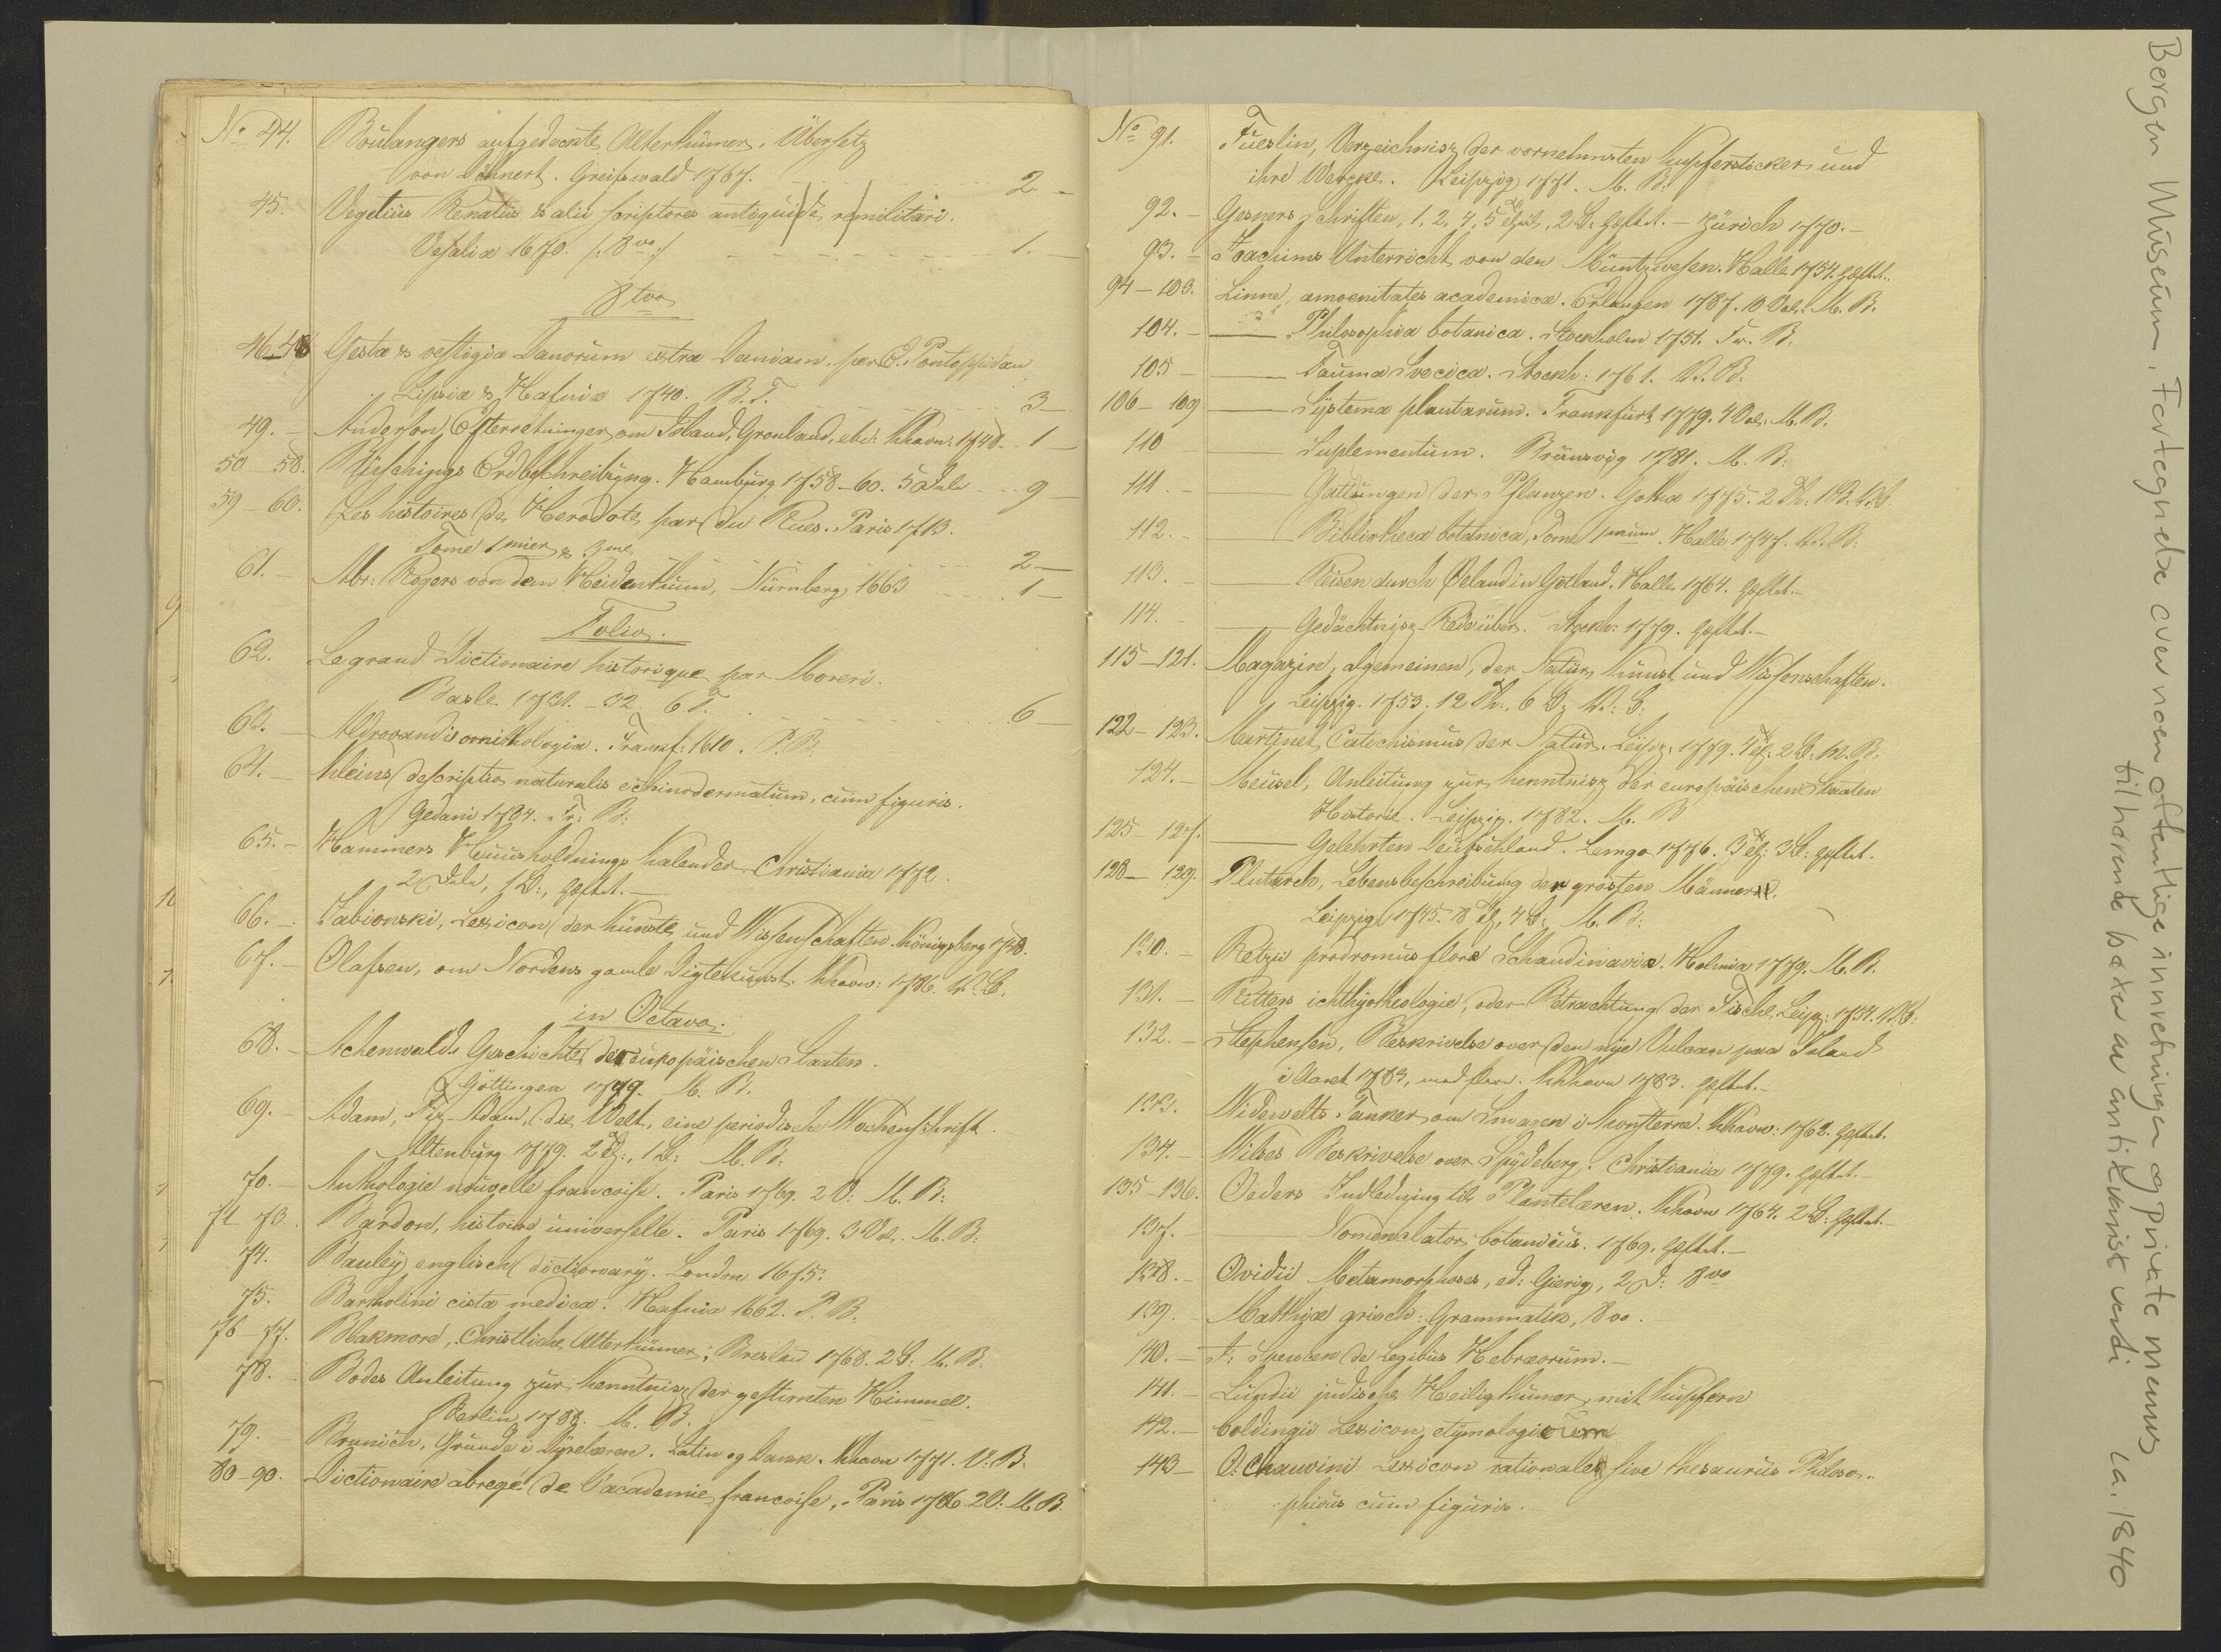 No 44. Boulangers aufgedeckte Alterthümer, Übersetz
von Dähnert. Greifswald 1767. 2 -
45. Vegetius Renatus & alii scriptores antiqui de re militari.
Vesaliæ 1670. /: 8vo :/ 1. -
8tvo
46-48 Gesta & vestigia Danorum extra Daniam. per E. Pontoppidan
Lipsiæ & Hafniæ 1740. 3 -
49. - Anderson, Efterretninger om Island, Grønland, etc: Khavn: 1748. 1 -
50-58. Büschings Erdbeschreibung. Hamburg 1758-60. 5 Dele 9 -
59-60. Les histoires de Herodote, par du Ryer. Paris 1713.
Tome 1mier & 3me 2 -
61. - Abr: Rogers von dem Heidenthum, Nürnberg 1663 1 -
Folio.
62. Le grand Dictionaire historique par Moreri.
Basle 1731.-32. 6 T. 6 -
63. - Aldrovandi ornithologia. Frankf: 1610. P. B.
64. - Kleins descriptio naturalis echinodermatum, cum figuris.
Gedani 1734. Fr: B:
65. - Hammers Huusholdnings Kalender Christiania 1772.
2 Dele, 1 B:, heftet. -
66. - Jablonski, Lexicon der Künste und Wissenschaften. Königsberg 1748.
67. - Olafsen, om Nordens gamle Digtekunst. Khavn: 1786.
in Octavo.
68. - Achenwalds Geschichte der europäischen Staaten.
Göttingen 1779. M. B.
69. - Adam, Fiz-Adam, die Welt, eine periodische Wochenschrift.
Altenburg 1779. 2 Th:, 1 B: M. B:
70. - Anthologie nouvelle francoise. Paris 1769. 2 B: M. B:
71-73. Dardon, histoire universelle. Paris 1769. 3 Vol. M. B:
74. Bauley englisch dictionary. London 1675.
75. Bartholini cista medica. Hafniæ 1662. P. B.
76-77. Blakmore, Christliche Alterthümer; Breslau 1768. 2 B: M. B.
78. - Bodes Anleitung zur Kenntnisz der gestirnten Himmel.
Berlin 1788. M. B.
79. Brunich, Grunde i Dyrelæren. Latin og Dansk. Khavn 1771. V: B:
80-90. Dictionaire abregé de l'academie francoise, Paris 1786 2 B: M B.
No 91. Füeslin, Verzeichnisz der vornehmsten Kupferstecker und
ihre Wercke. Leipzig 1771. M. B:
92. - Gesners Schriften, 1, 2, 4, 5 Theil, 2 B. heftet. - Zürich 1770. -
93. - Joachims Unterricht von den Müntzwesen. Halle 1754. heftet.
94-103. Linne, amoenitates academicæ. Erlangen 1787. 10 Vol. M. B.
104. - —— Philosophia botanica. Stockholm 1751. Fr. B.
105 - —— Fauna Svecica. Stockh: 1761.
106-109 —— Systema plantarum. Frankfurt 1779. 4 Vol. M. B.
110 —— Suplementum. Brünsvig 1781. M. B:
111. - —— Gattungen der Pflanzen. Gotha 1775. 2 Th.
112. - —— Bibliotheca botanica, Tome 1mum. Halle 1747.
113. - —— Reisen durch Øeland in Gotland. Halle 1764. heftet. -
114. - —— Gedächtnisz-Rede über. Stockh: 1779. heftet. -
115-121. Magazin, algemeinen, der Natur, Kunst und Wissenschaften.
Leipzig. 1753. 12 Th:, 6 B;
122-123. Martinet, Catechismus der Natur. Leipz. 1779. 4 Th. 2 B.
124. - Meusel, Anleitung zur Kenntnisz der europäischen Staaten
Historie. Leipzig. 1782. M. B
125-127. —— Gelehrten Deutschland. Lemgo 1776. 3 Th; 3 B: heftet.
128-129. Plutarch, Lebensbeschreibung der grösten Männer.
Leipzig 1745. 8 Th, 4 B; M. B:
130. - Retzii prodromus floræ Schandinaviæ. Holmiæ 1779. M. B.
131. - Ritters ichthyotheologie, oder Betrachtung der Fische. Leipz: 1754.
132. - Stephensen, Beskrivelse over den nye Vulcan paa Island
i Aaret 1783, med flere. Khhavn 1783. heftet. -
133. Widewelts Tanker om Smagen i Konsterne. Khavn: 1762. heftet.
134. - Wilses Beskrivelse over Spydeberg. Christiania 1779. heftet. -
135-136. Oeders Indledning til Plantelæren. Khavn 1764. 2 B: heftet. -
137. - —— Nomenclator botanicus. 1769. heftet. -
138. - Ovidii Metamorphoses, ed: Gierig, 2 D: 8vo
139. Matthiæ grisch: Grammatik, 8vo. -
140. - J: Spencer de Legibus Hebræorum. -
141. - Lundii judische Heiligthümer, mit Kupfern
142. - Coldingii Lexicon etymologicum
143 - Chauvini Lexicon rationale sive thesaurus Philoso-
phicus cum figuris.
Bergen Museum. Fortegnelse over noen offentlige innretninger og private menns
tilhørende bøker av antikvarisk verdi ca. 1840